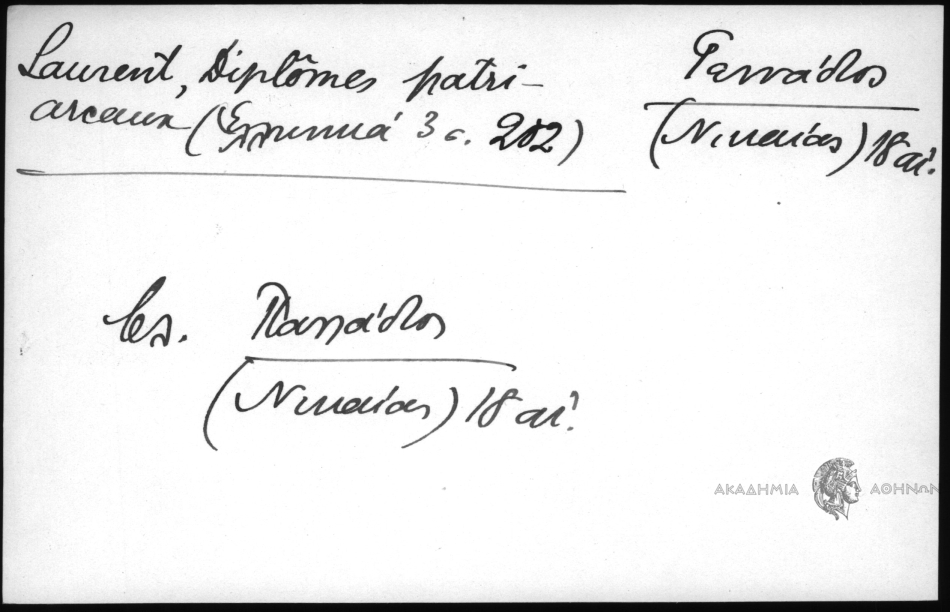 Laurent, Diplômes patri-
arcaux (Ἑλληνικά 3 σ. 202)
Γεννάδιος
(Νικαίας) 18 αἰ.
βλ. Παλλάδιος
(Νικαίας) 18 αἰ.
ΑΚΑΔΗΜΙΑ ΑΘΗΝΩΝ